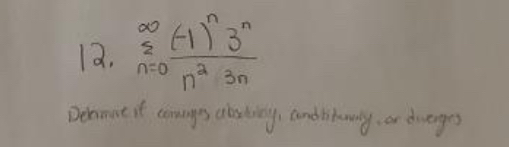 12. ∞ Σ n=0 (-1)^n 3^n / n^2 3n
Determine if converges, absolutely, conditionally, or diverges